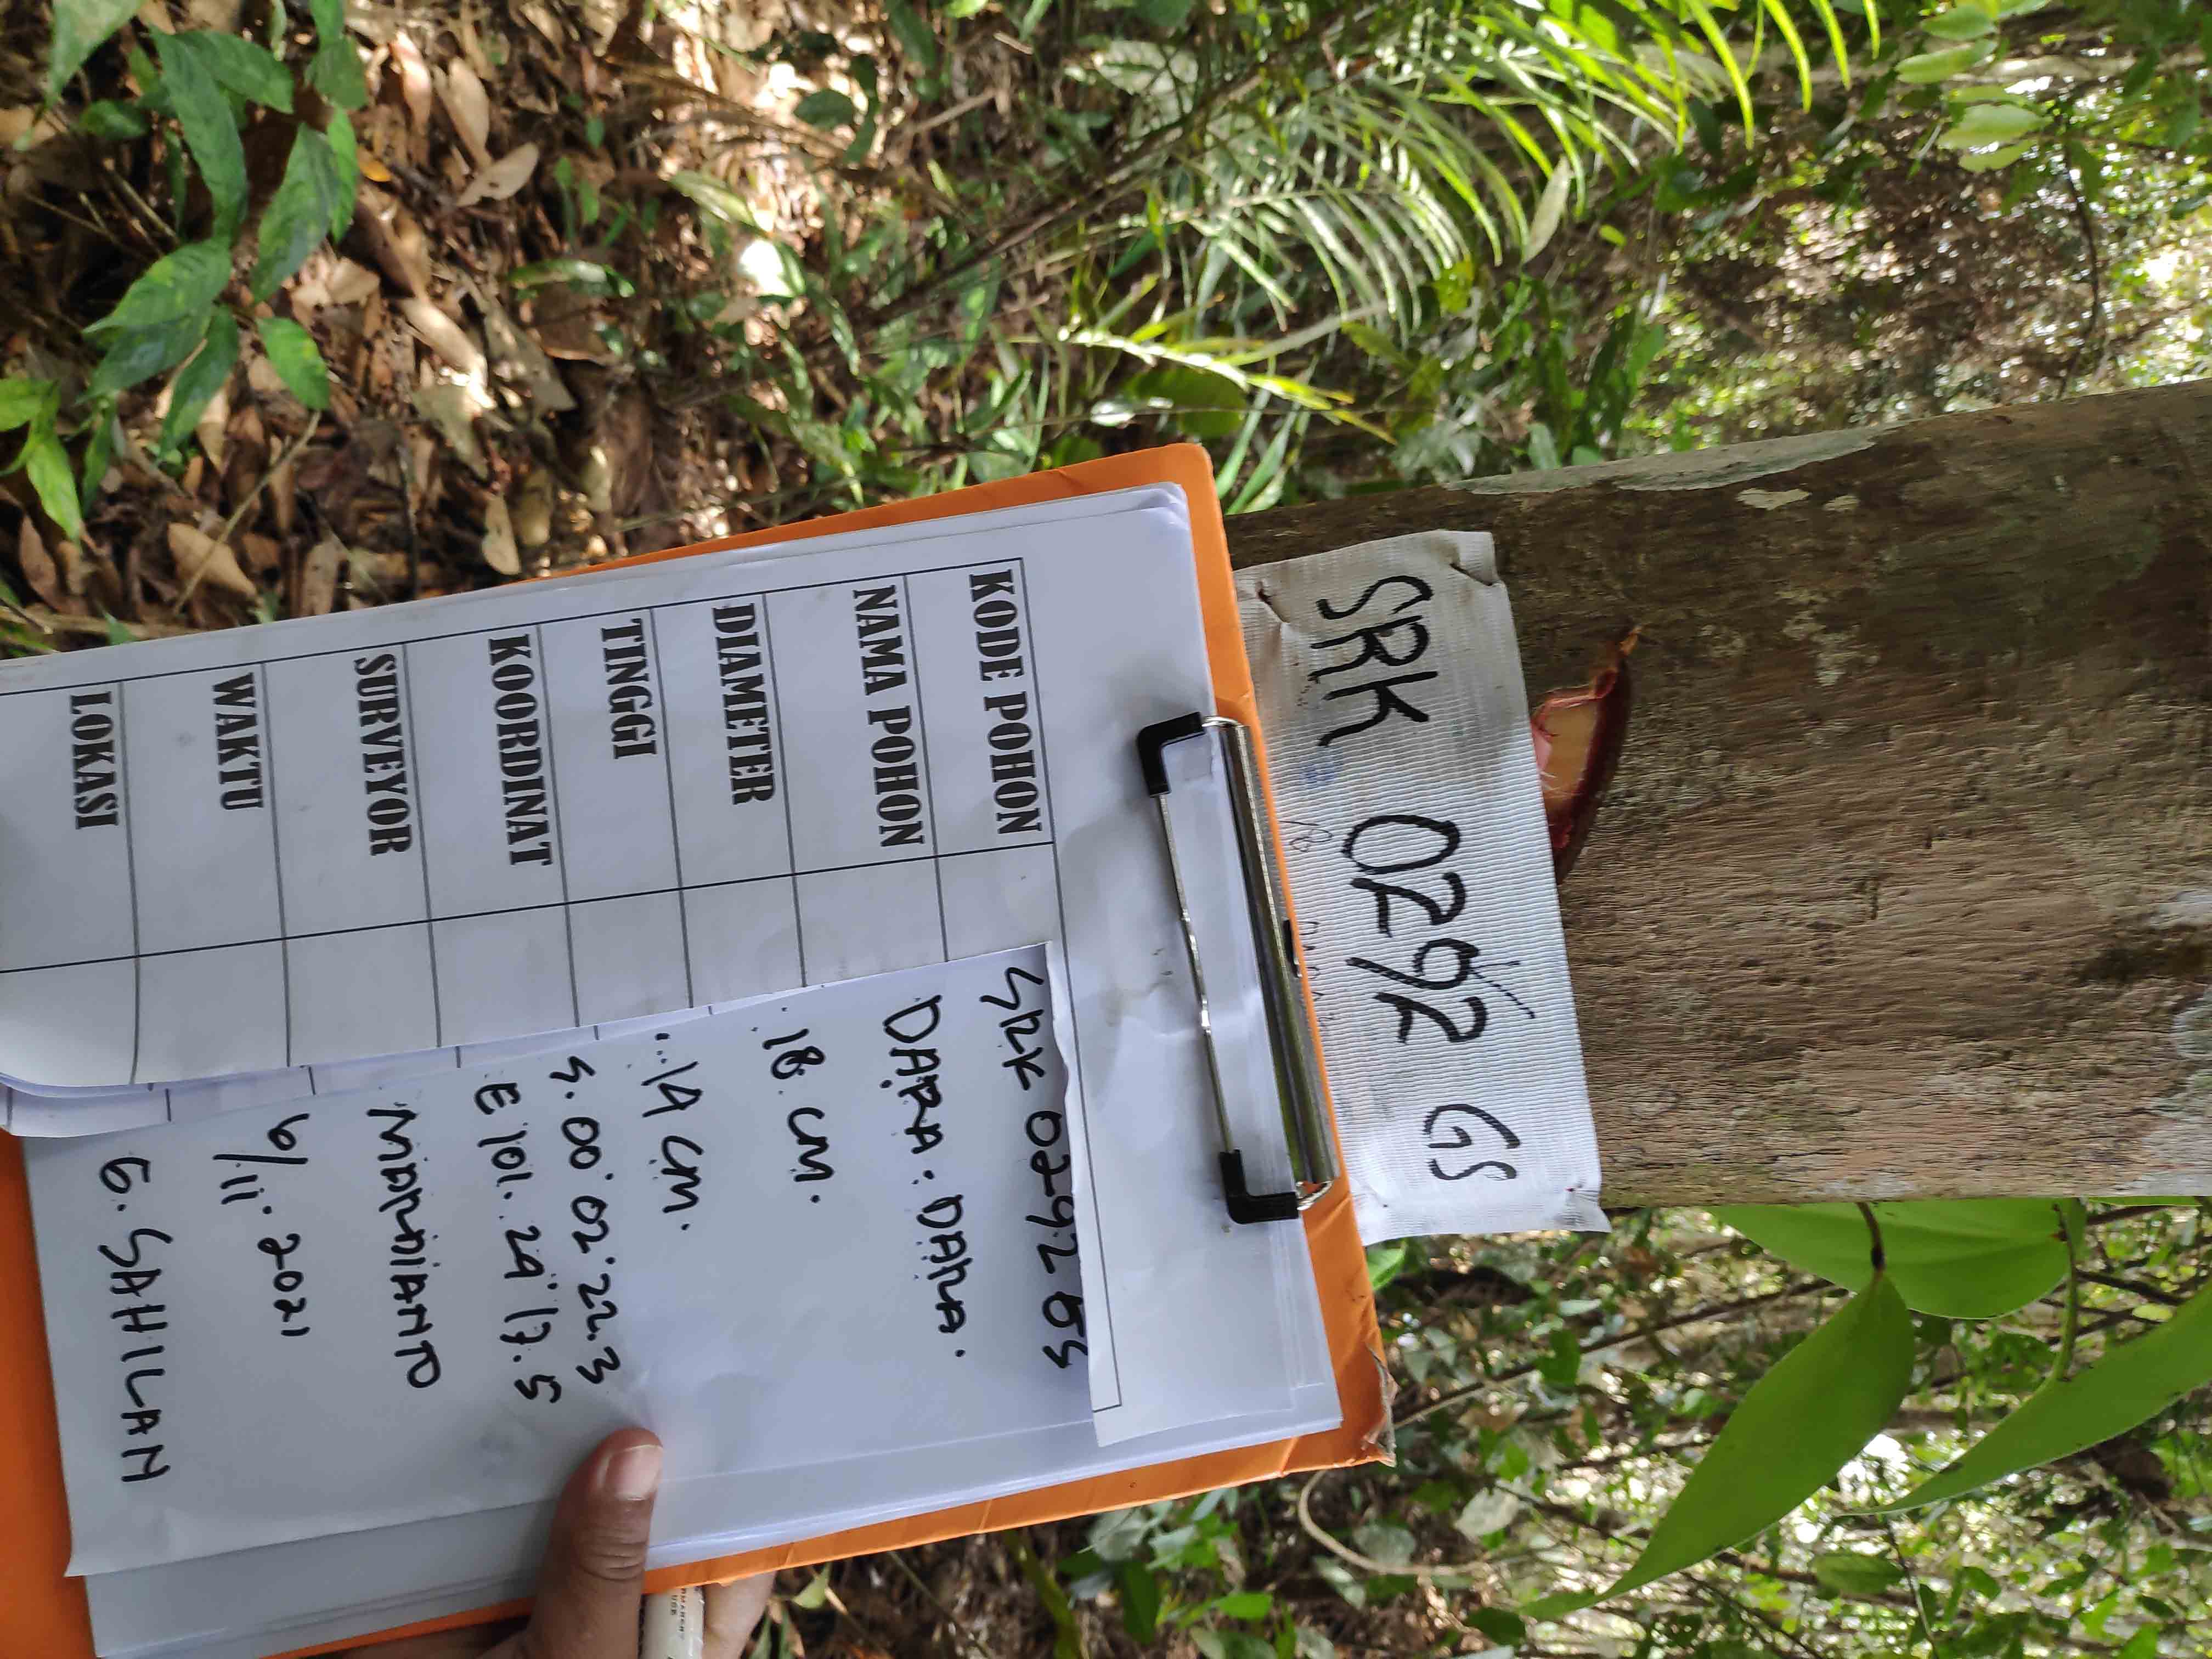 SRK 0292 GS
KODE POHON SRK 0292 GS
NAMA POHON DARA. DARA.
DIAMETER 18 cm.
TINGGI 14 cm.
KOORDINAT S. 00° 02' 22.3
E 101. 29' 17.5
SURVEYOR MARHIANTO
WAKTU 6/11. 2021
LOKASI G. SAHILAN